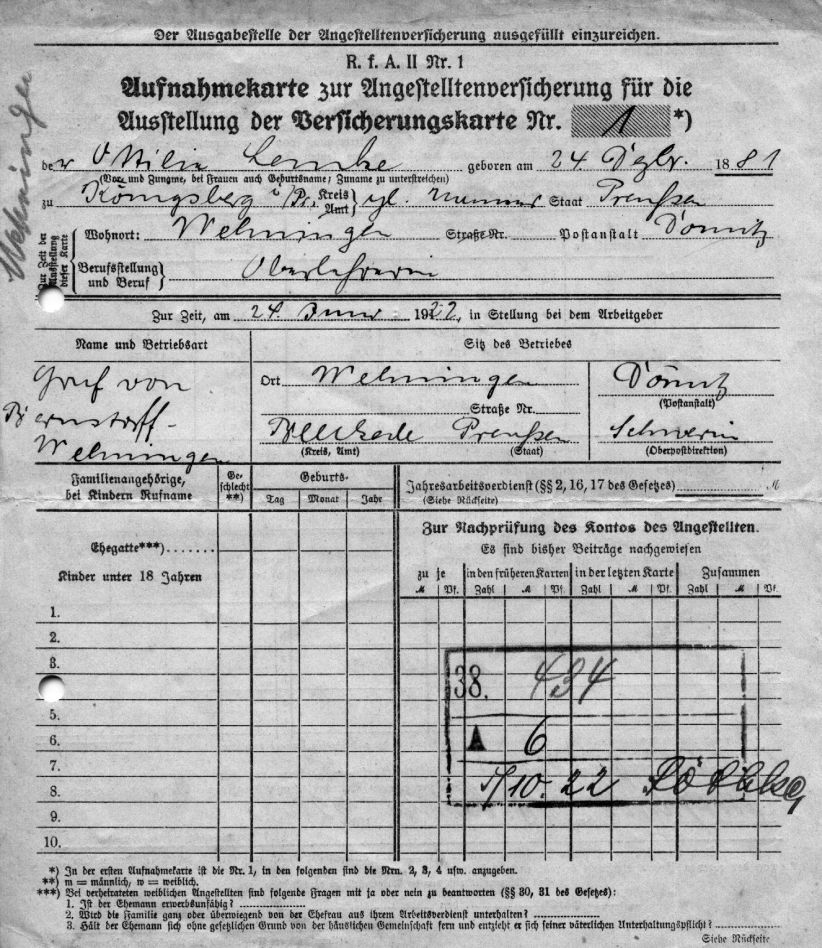 Der Ausgabestelle der Angestelltenversicherung ausgefüllt einzureichen.
R. f. A. II Nr. 1
Aufnahmekarte zur Angestelltenversicherung für die
Ausstellung der Versicherungskarte Nr. 1 *)
der Ottilie Lemke geboren am 24. Dezbr. 1881
(Vor- und Zuname, bei Frauen auch Geburtsname; Zuname zu unterstreichen)
zu Königsberg i/Pr. Kreis Amt Staat Preußen
Wehningen
Zur Zeit der Ausstellung dieser Karte
Wohnort: Wehningen Straße Nr. Postanstalt Dömitz
Berufsstellung und Beruf Oberlehrerin
Zur Zeit, am 24 1922, in Stellung bei dem Arbeitgeber
Name und Betriebsart Sitz des Betriebes
Graf von Ort Wehningen Dömitz
Bernstorff- Straße Nr. (Postanstalt)
Wehningen Bleckede Preußen Schwerin
(Kreis, Amt) (Staat) (Oberpostdirektion)
Familienangehörige, bei Kindern Rufname Geschlecht **) Geburts-
Tag Monat Jahr
Jahresarbeitsverdienst (§§ 2, 16, 17 des Gesetzes) M
(Siehe Rückseite)
Zur Nachprüfung des Kontos des Angestellten.
Es sind bisher Beiträge nachgewiesen
Ehegatte***)
Kinder unter 18 Jahren
zu je in den früheren Karten in der letzten Karte Zusammen
M Pf. Zahl M Pf. Zahl M Pf. Zahl M Pf.
1.
2.
3.
38. 434
5.
6.
A 6
7.
8.
10. 22
9.
10.
*) In der ersten Aufnahmekarte ist die Nr. 1, in den folgenden sind die Nrn. 2, 3, 4 usw. anzugeben.
**) m = männlich, w = weiblich.
***) Bei verheirateten weiblichen Angestellten sind folgende Fragen mit ja oder nein zu beantworten (§§ 30, 31 des Gesetzes):
1. Ist der Ehemann erwerbsunfähig?
2. Wird die Familie ganz oder überwiegend von der Ehefrau aus ihrem Arbeitsverdienst unterhalten?
3. Hält der Ehemann sich ohne gesetzlichen Grund von der häuslichen Gemeinschaft fern und entzieht er sich seiner väterlichen Unterhaltungspflicht?
Siehe Rückseite